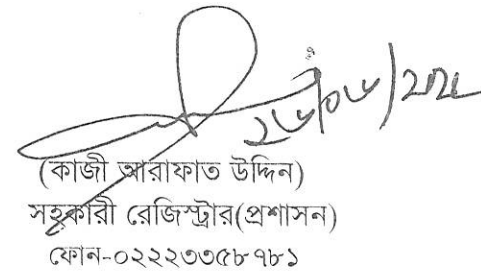 ২৬/০৬/২০২৫
(কাজী আরাফাত উদ্দিন)
সহকারী রেজিস্ট্রার(প্রশাসন)
ফোন-০২২২৩৩৫৮৭৮১